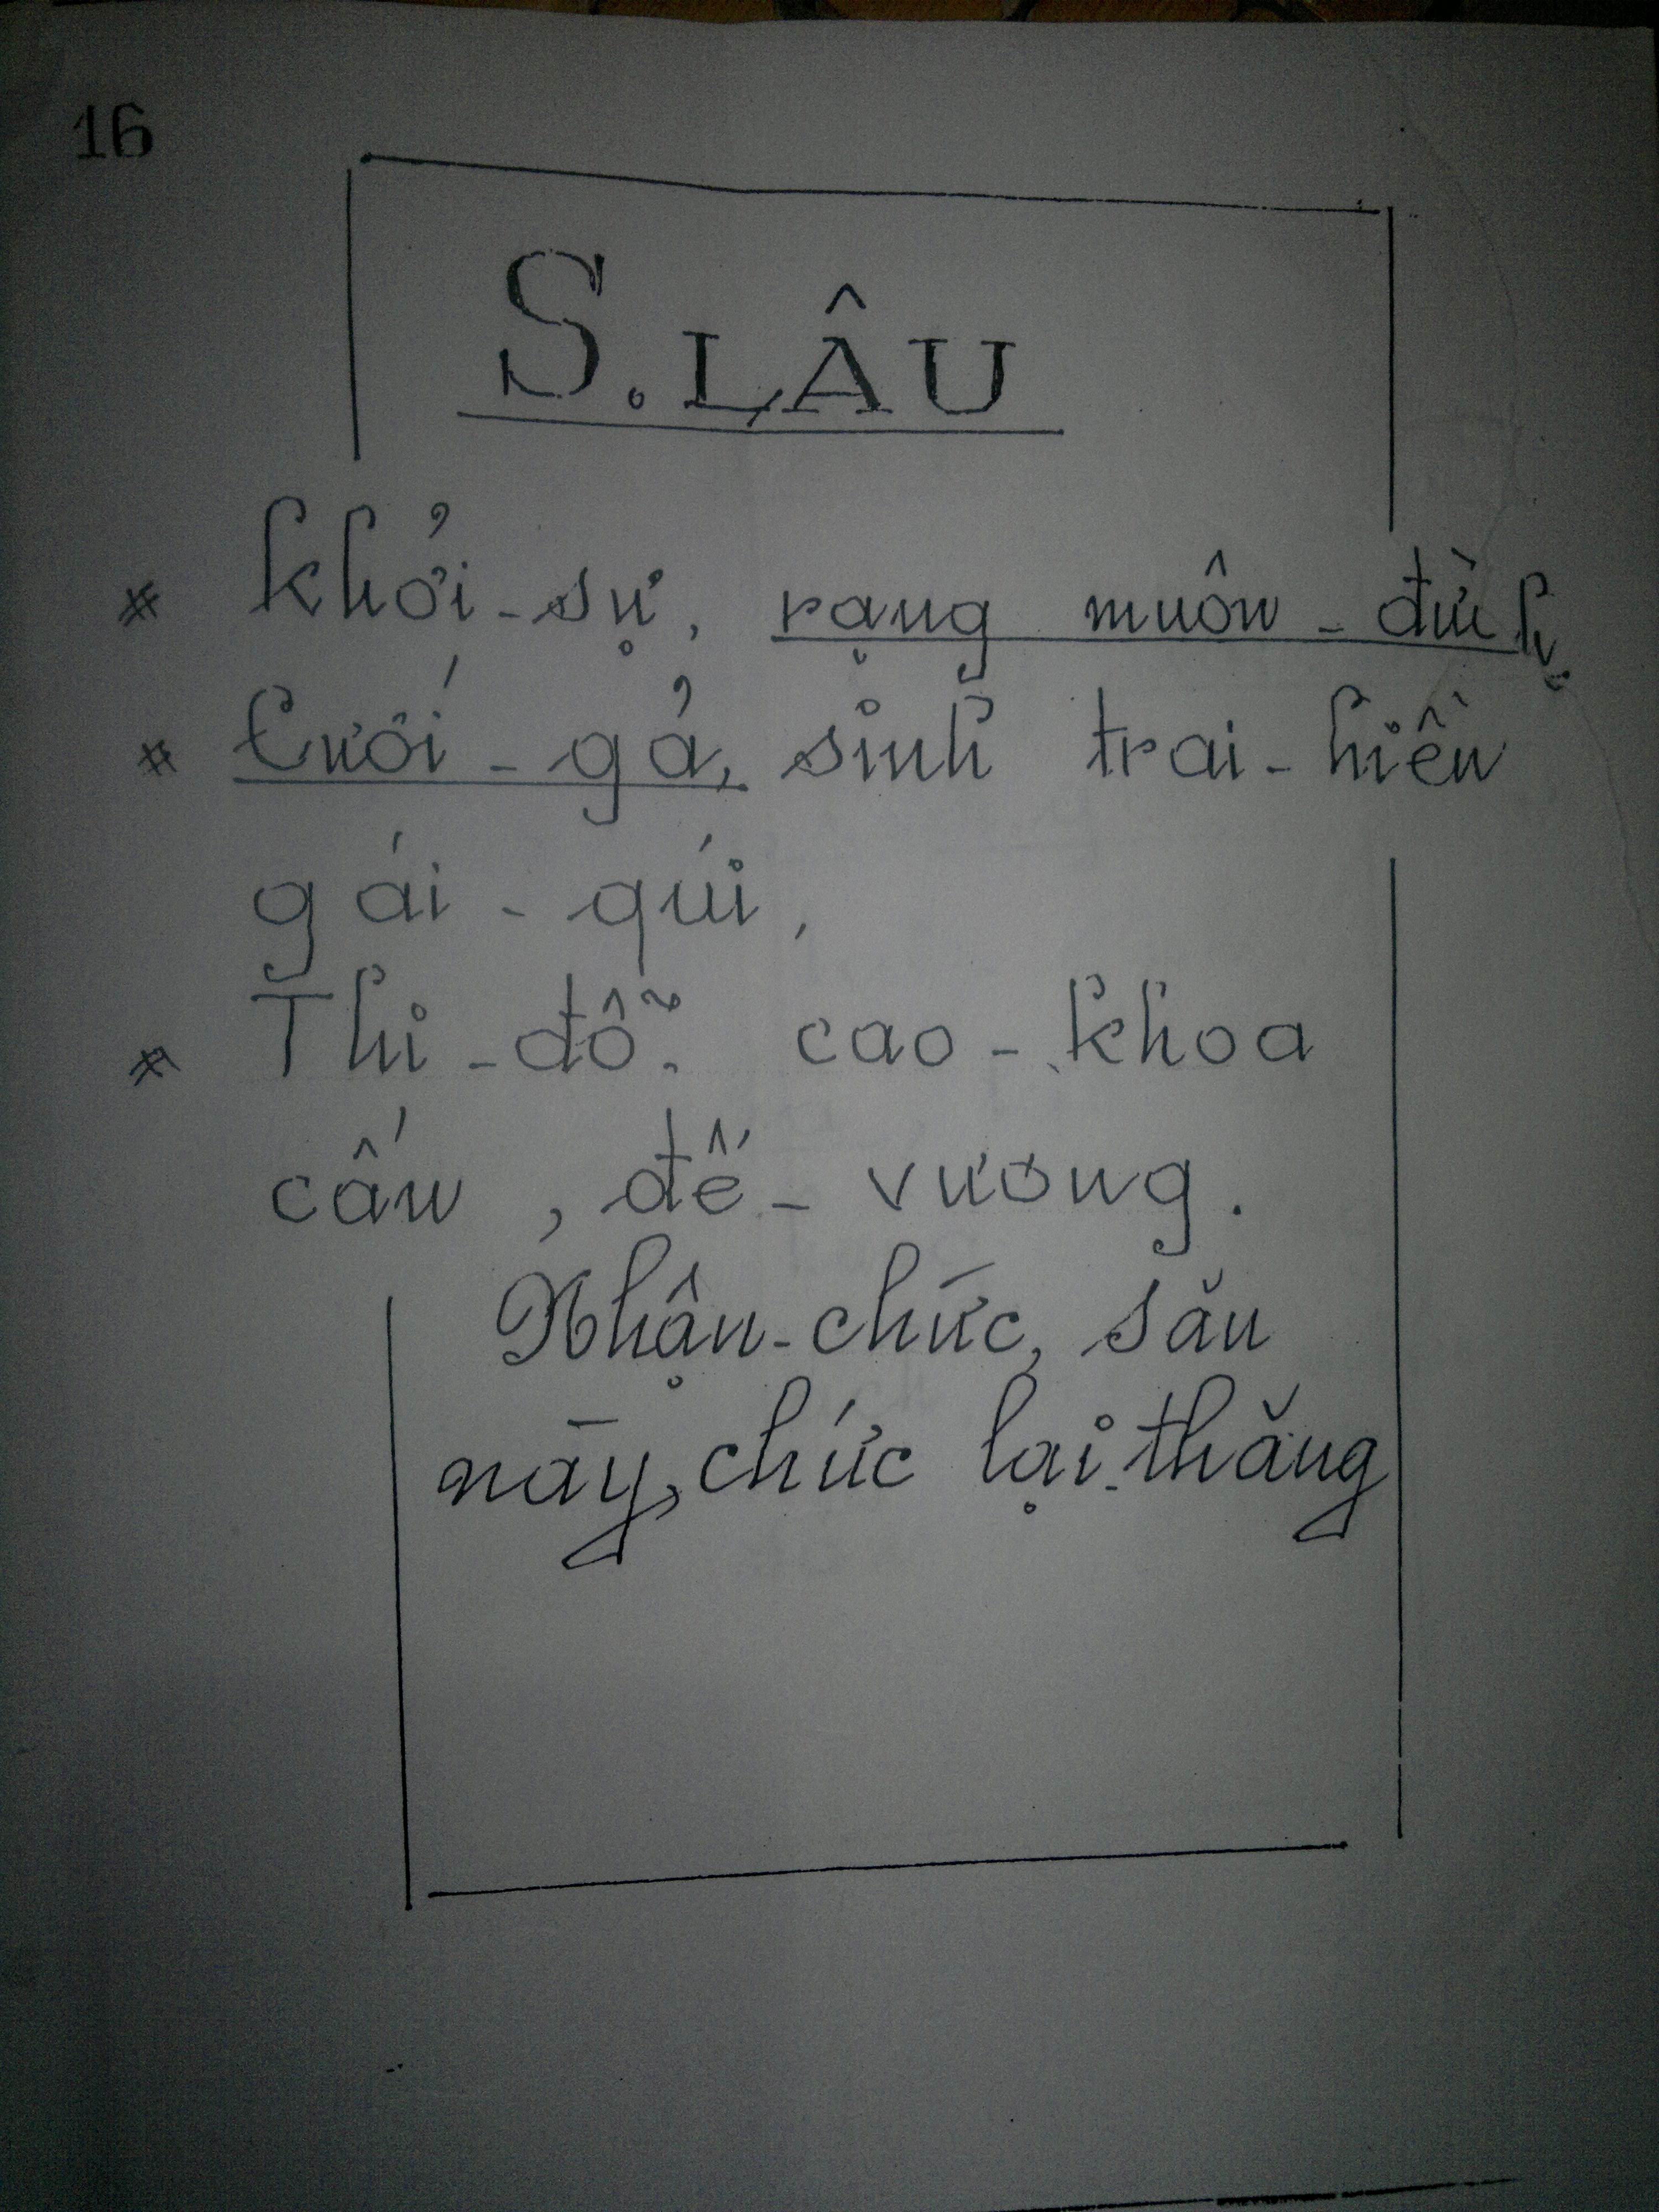 16
S. LÂU
* Khởi-sự, rạng muôn-đình
* Cưới-gả, sinh trai-hiền
gái-qúi,
* Thi-đỗ. cao-khoa
cấn, đế-vương.
Nhận-chức, săn
nãy, chức lại-thăng